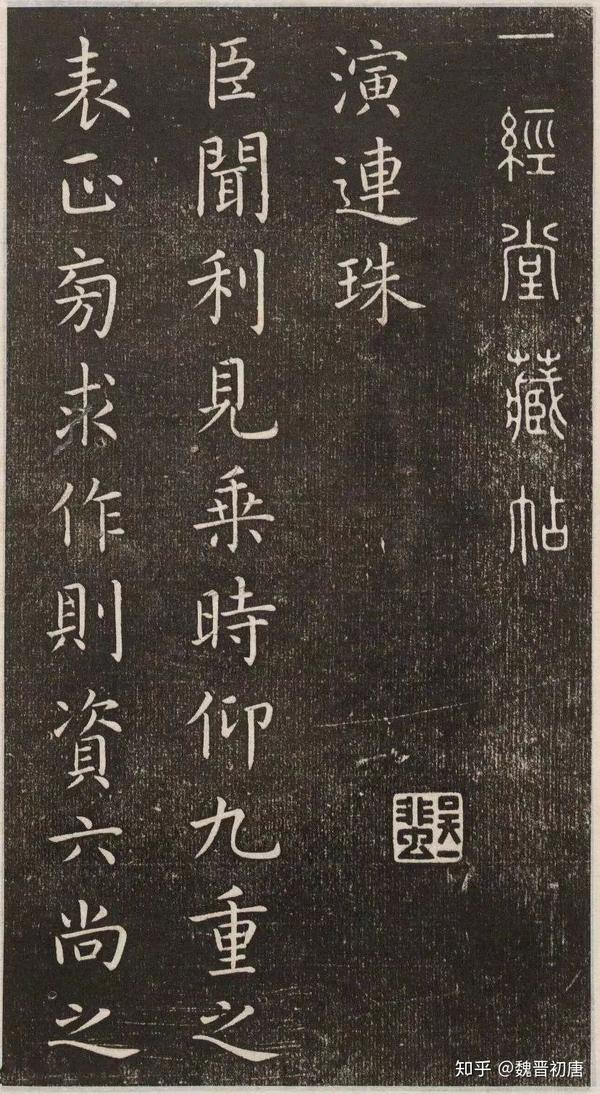 一經堂藏帖
演連珠
臣聞利見乗時仰九重之
表正旁求作則資六尚之
吳一蜚
知乎 @魏晋初唐